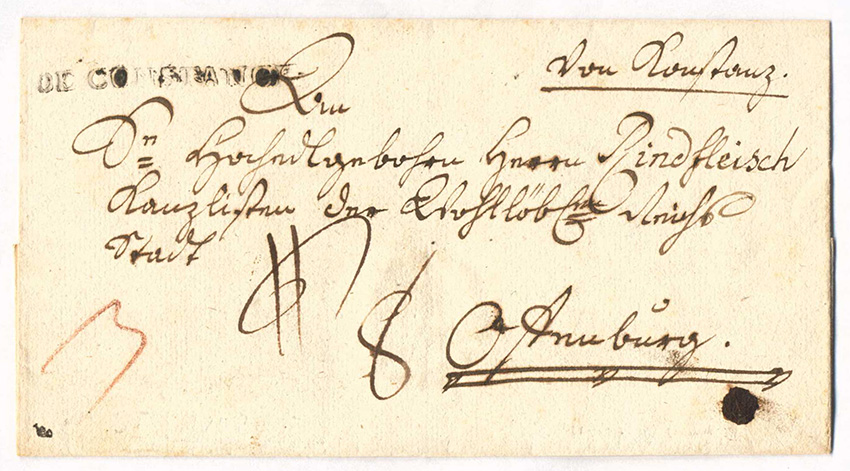 DE CONSTANCE
Von Konstanz.
An
Sr Hochedlgebohrn Herrn Rindfleisch
Kanzlisten der Wohllöbl Reichs
Stadt
8
Offenburg.